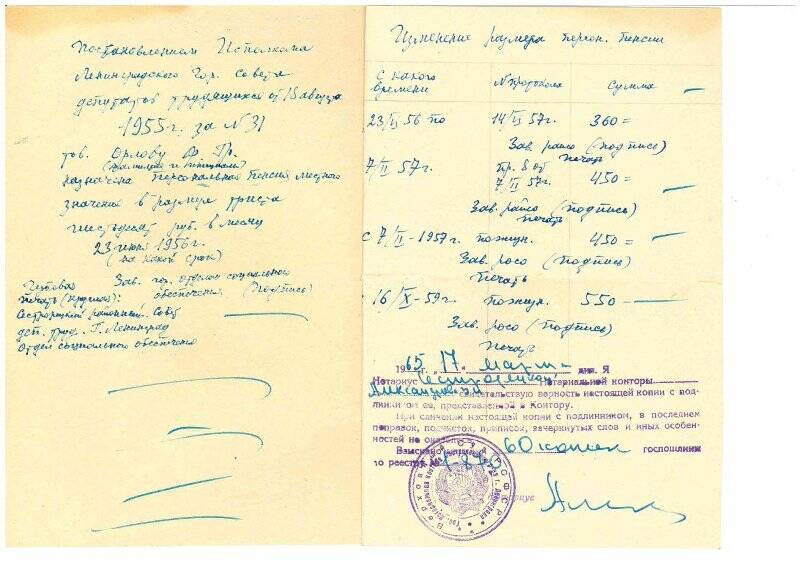 Постановлением Исполкома
Ленинградского Гор. Совета
депутатов трудящихся от 18 августа
1955г. за N 31
тов. Орлову Ф. Гр.
(фамилия и инициалы)
назначена персональная пенсия местного
значения в размере триста
шестьдесят руб. в месяц
23 июня 1956г.
(на какой срок)
Зав. гор. отделом социального
обеспечения (подпись)
Гербовая
печать (круглая):
Сестрорецкий районный Совет
деп. труд. г. Ленинград
Отдел социального обеспечения
Изменение размера персон. пенсии
с какого времени N протокола Сумма
23/II 56 по 14/II 57г. 360 =
Зав. райсо (подпись)
печать
7/II 57г. пр. 8 от 7/II 57г. 450 =
Зав. райсо (подпись)
печать
с 7/II - 1957г. пожизн. 450 =
Зав. росо (подпись)
печать
16/X - 59г. пожизн. 550 —
Зав. росо (подпись)
печать
1965 г. 17 марта дня. Я
Нотариус Сестрорецкой нотариальной конторы
свидетельствую верность настоящей копии с под-
линником ее, представленной в Контору.
При сличении настоящей копии с подлинником, в последнем
поправок, подчисток, приписок, зачеркнутых слов и иных особен-
ностей не оказалось
Взыскано 60 копеек госпошлины
по реестру №
Нотариус